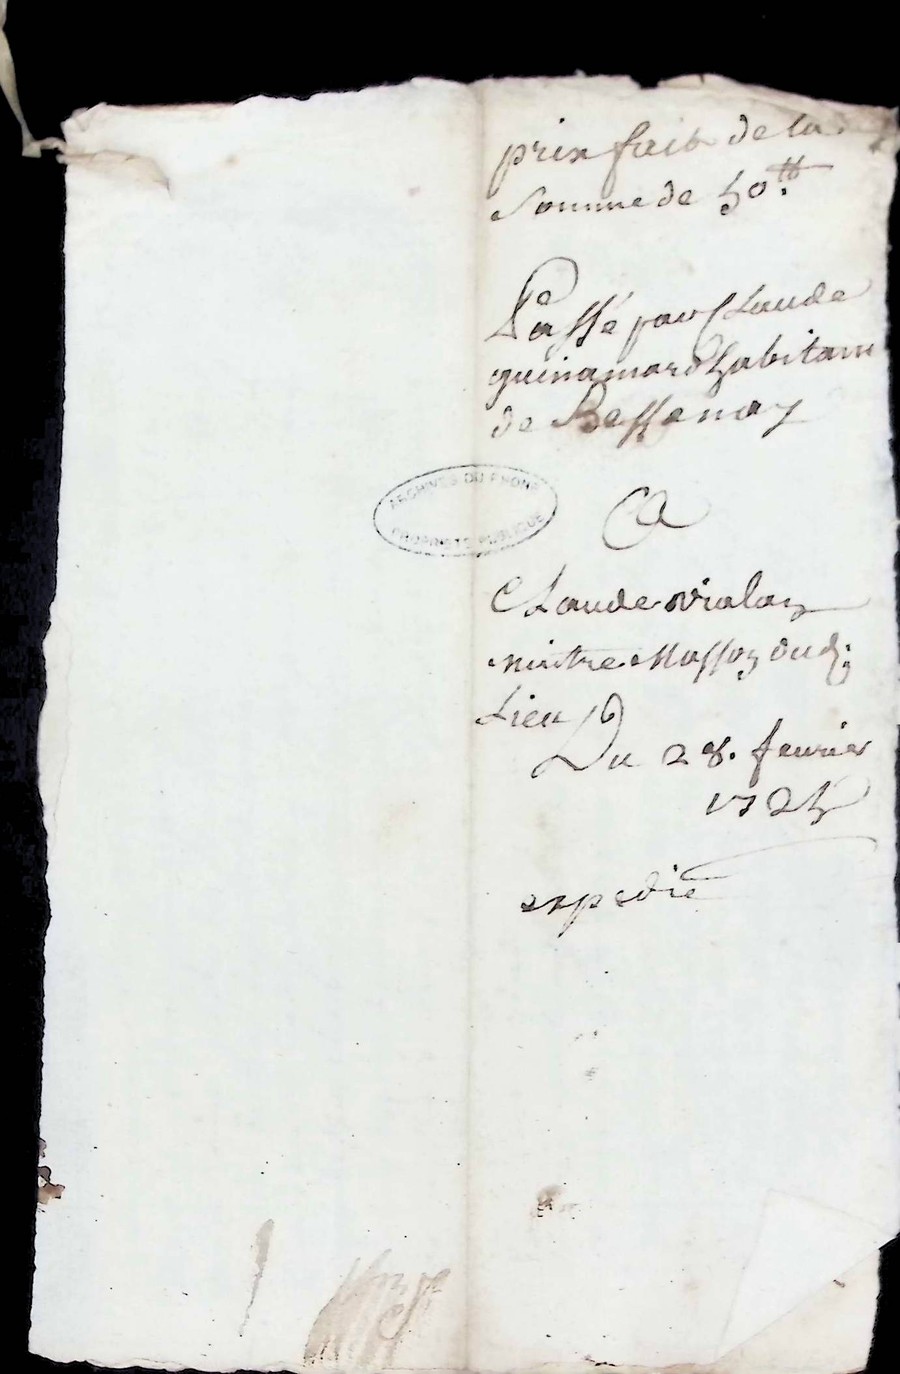 prix fait de la
Somme de 50ᵗᵗ
Passé par Claude
guinamard habitant
de Bessenay
A
Claude vialon
mitre Masson dud:
Lieu
Du 28. fevrier
1725
expedié
ARCHIVES DU RHONE
PROPRIETE PUBLIQUE